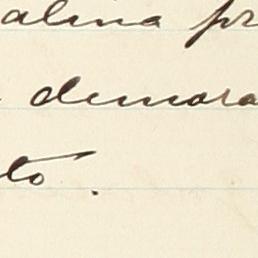 alina pr
demora
to.